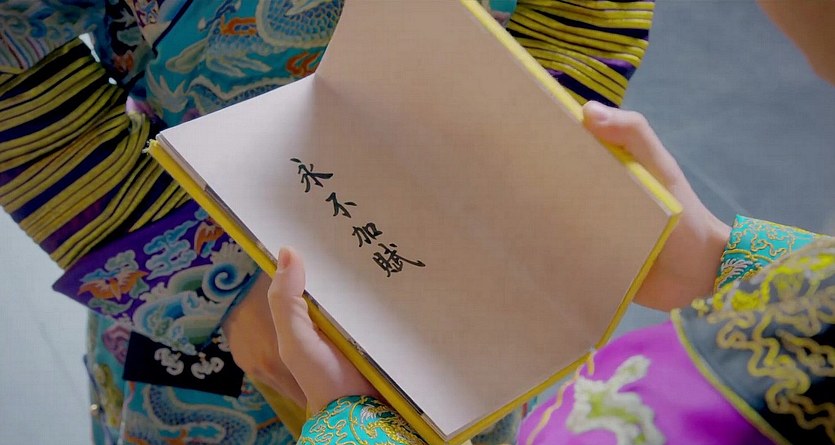 永不加賦